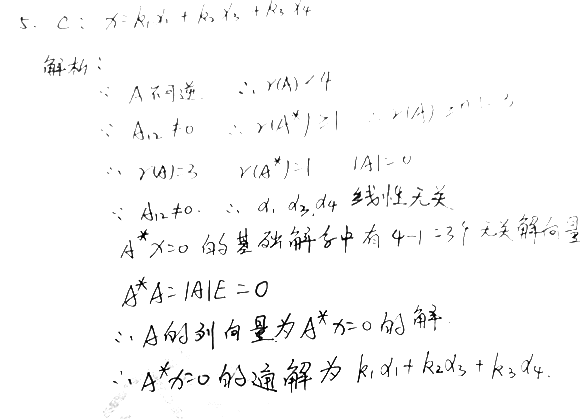 5. C: x=k₁α₁+k₂α₃+k₃α₄
解析:
∵ A不可逆 ∴ r(A)<4
∵ A₁₂≠0 ∴ r(A*)≥1 ∴ r(A)
∴ r(A)=3 r(A*)=1 |A|=0
∵ A₁₂≠0. ∴ α₁ α₃ α₄ 线性无关
A*x=0 的基础解系中有 4-1=3个无关解向量
A*A=|A|E=0
∴ A的列向量为A*x=0的解.
∴ A*x=0的通解为 k₁α₁+k₂α₃+k₃α₄.